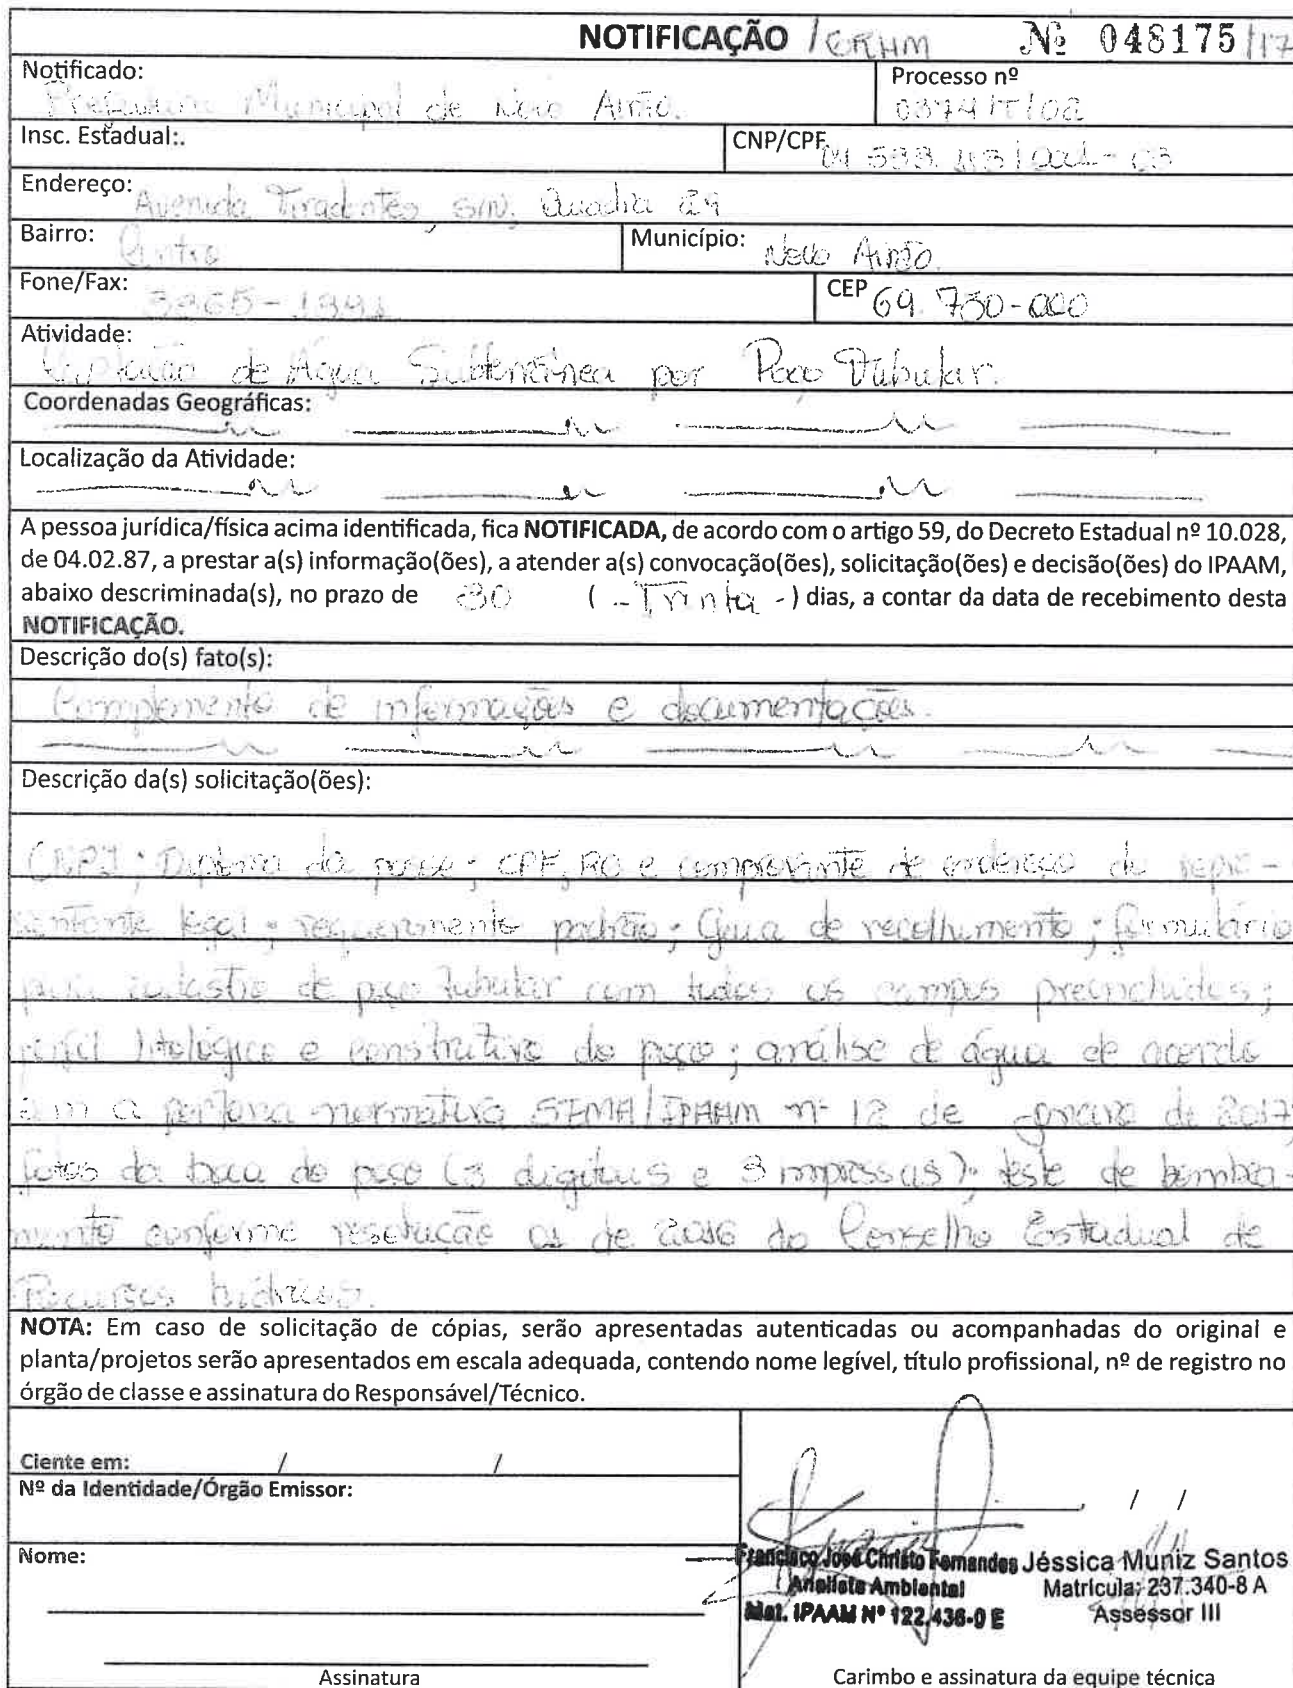 NOTIFICAÇÃO / GRHM Nº 048175/17
Notificado:
Prefeitura Municipal de Novo Airão.
Processo nº
0374/T/02
Insc. Estadual:.
CNP/CPF
Endereço: Avenida Tiradentes, S/N, Quadra 29
Bairro: Centro
Município: Novo Airão.
Fone/Fax: 3365-1391
CEP 69.730-000
Atividade:
Captação de Água Subterrânea por Poço Tubular.
Coordenadas Geográficas:
Localização da Atividade:
A pessoa jurídica/física acima identificada, fica NOTIFICADA, de acordo com o artigo 59, do Decreto Estadual nº 10.028,
de 04.02.87, a prestar a(s) informação(ões), a atender a(s) convocação(ões), solicitação(ões) e decisão(ões) do IPAAM,
abaixo descriminada(s), no prazo de 30 ( - Trinta - ) dias, a contar da data de recebimento desta
NOTIFICAÇÃO.
Descrição do(s) fato(s):
Complemento de informações e documentações.
Descrição da(s) solicitação(ões):
CNPJ; Diploma da posse; CPF, RG e comprovante de endereço do repre-
sentante legal; requerimento padrão; Guia de recolhimento; formulário
para cadastro de poço tubular com todos os campos preenchidos;
perfil litológico e construtivo do poço; análise de água de acordo
com a portaria normativa SEMA/IPAAM nº 12 de janeiro de 2017;
fotos da boca do poço (3 digitais e 3 impressas); teste de bombea-
mento conforme resolução 01 de 2016 do Conselho Estadual de
Recursos hídricos.
NOTA: Em caso de solicitação de cópias, serão apresentadas autenticadas ou acompanhadas do original e
planta/projetos serão apresentados em escala adequada, contendo nome legível, título profissional, nº de registro no
órgão de classe e assinatura do Responsável/Técnico.
Ciente em: / /
Nº da Identidade/Órgão Emissor:
Nome:
Assinatura
, / /
Francisco José Christo Fernandes
Analista Ambiental
Mat. IPAAM Nº 122.436-0 E
Jéssica Muniz Santos
Matrícula: 237.340-8 A
Assessor III
Carimbo e assinatura da equipe técnica